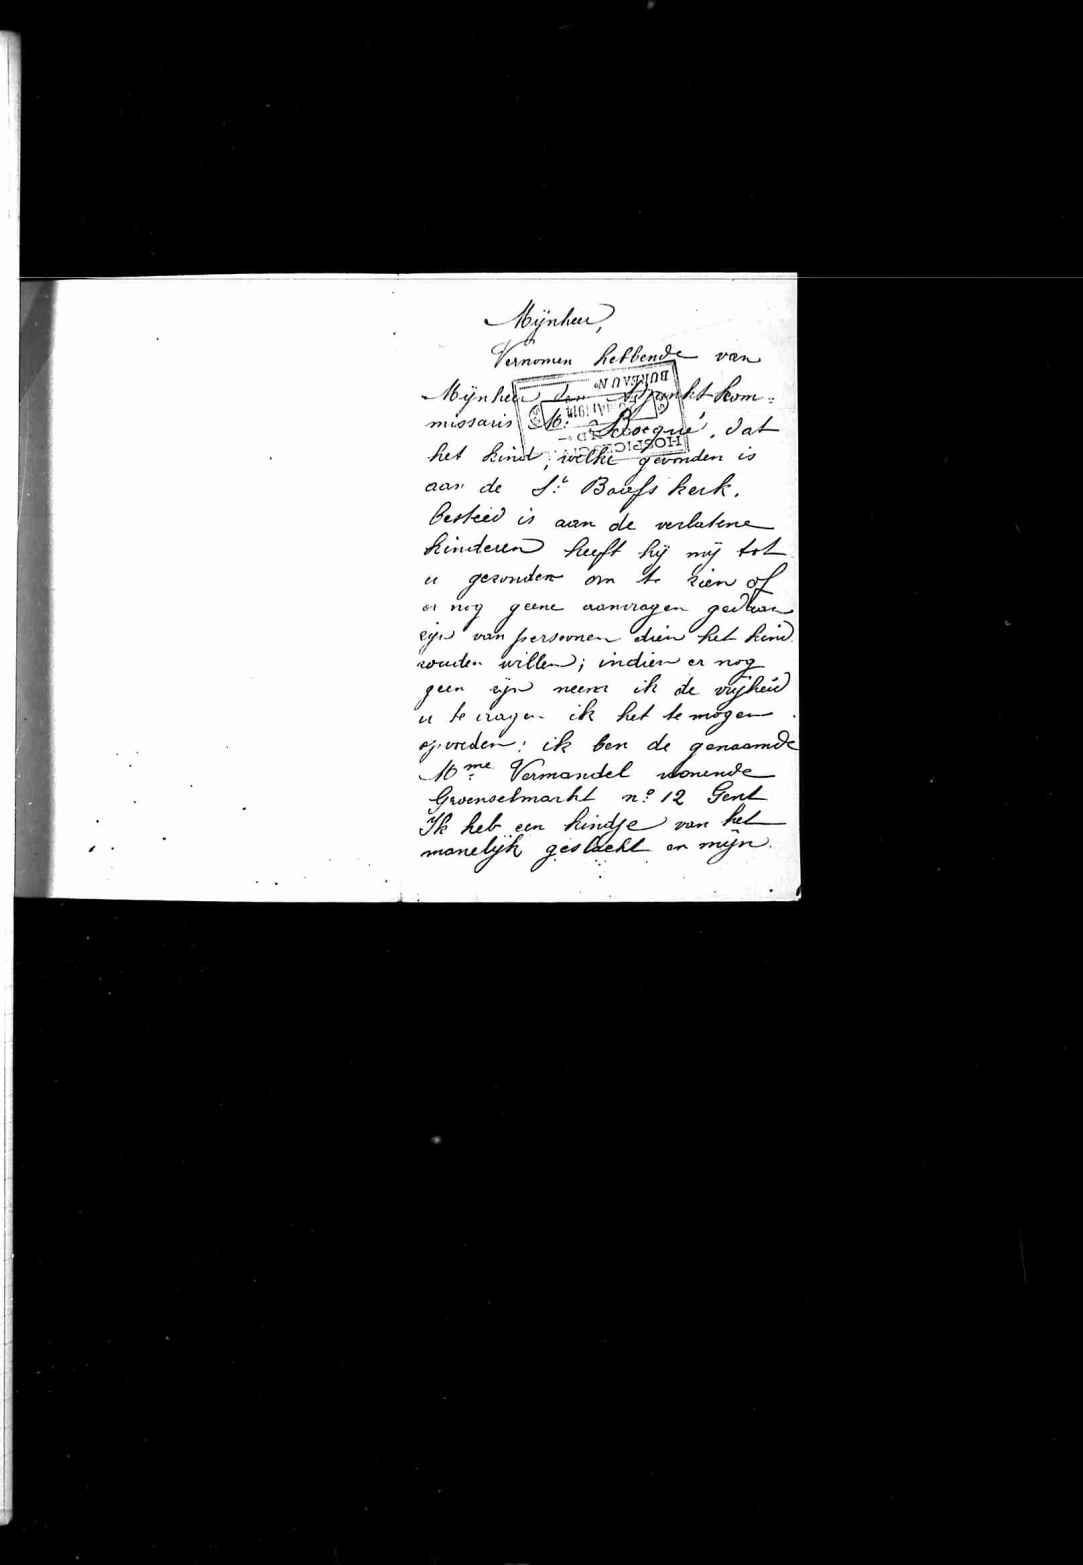 Mijnheer,
Vernomen hebbende van
Mijnheer den Adjunkt kom=
missaris Mr. , dat
het kind, welke gevonden is
aan de St. Baafs kerk.
besteed is aan de verlatene
kinderen heeft hij mij tot
u gezonden om te zien of
er nog geene aanvragen gedaan
zijn van persoonen dien het kind
zouden willen; indien er nog
geen zijn neem ik de vrijheid
u te vragen ik het te mogen
opvoeden: ik ben de genaamde
Mme Vermandel wonende
Groenselmarkt no 12 Gent
Ik heb een kindje van het
manelijk geslacht en mijn
BUREAU No
MAI 1914
HOSPICES
GAND